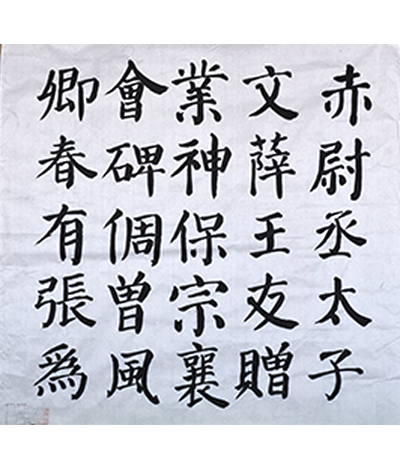 赤尉丞太子
文薛王友贈
業神保宗襄
會碑倜曽風
卿春有張為